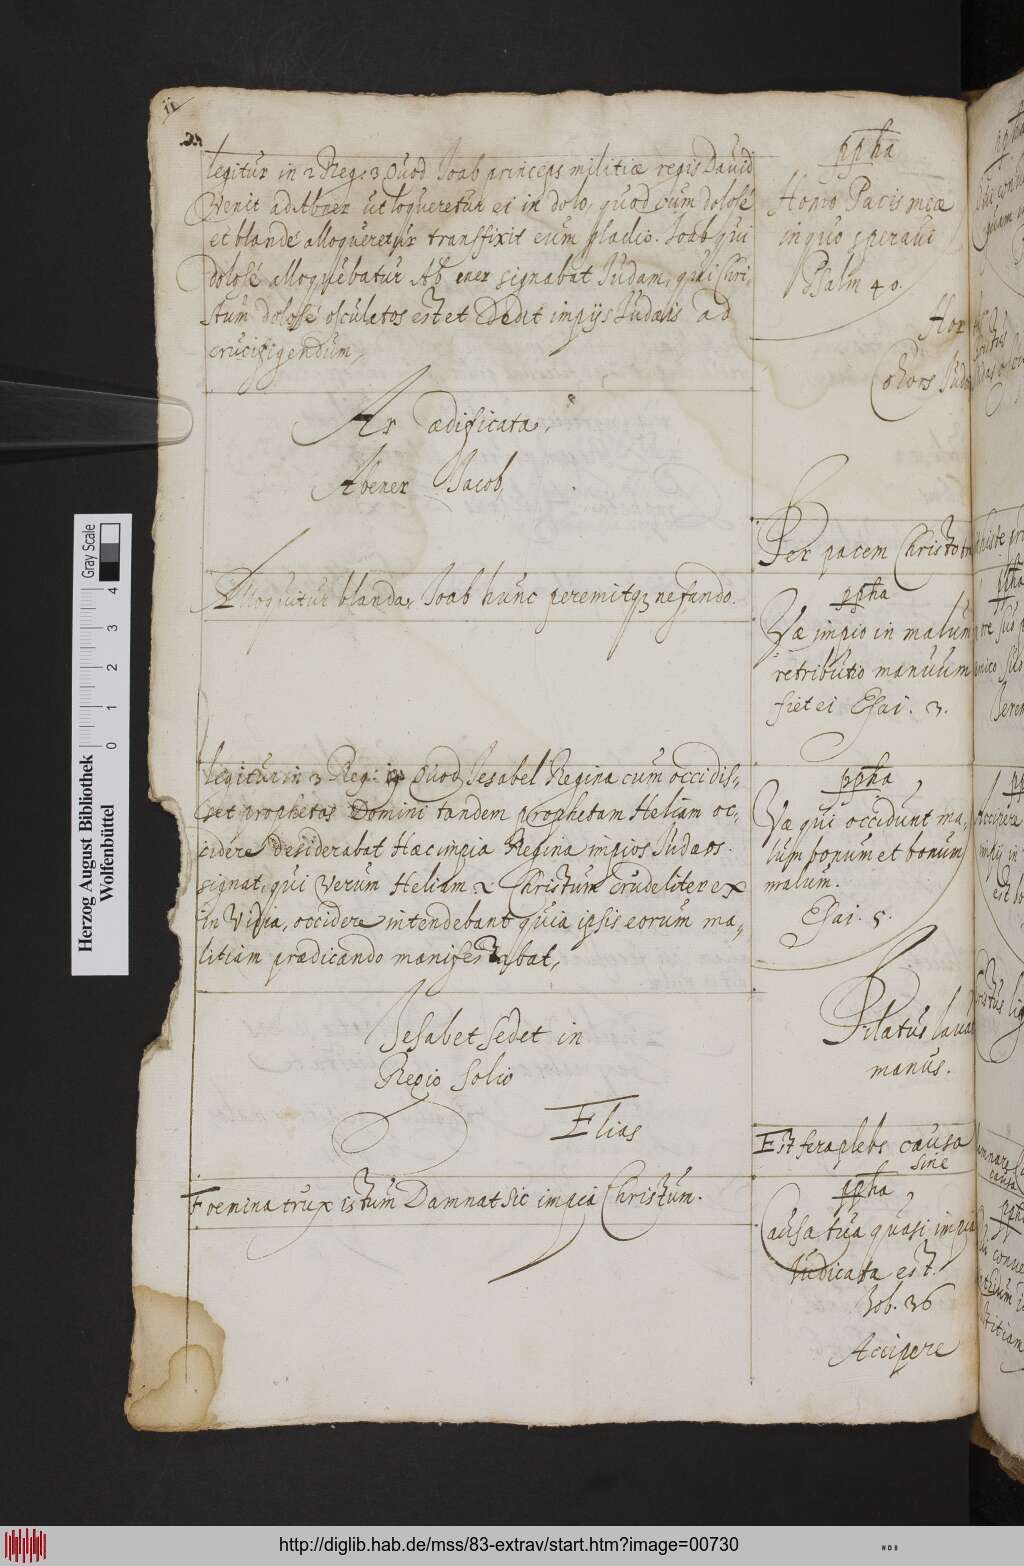 ii
21
legitur in 2 Reg. 3 Quod Joab princeps militiæ regis David
Venit ad Abner ut loqueretur ei in dolo, quod cum dolosé
et blandé alloqueretur transfixit eum gladio. Joab qui
dolosé alloquebatur Ab ener signabat Judam, qui Chri-
stum dolosé osculatos est et Dedit impijs Judæis ad
crucifigendum,
Ar ædificata,
Abener Jacob,
Alloquitur blanda, Joab hunc peremitqз nefando.
legitur in 3 Reg: Quod Jesabel Regina cum occidis-
set prophetas Domini tandem prophetam Heliam oc-
cidere desiderabat Hæc impia Regina impios Judæos.
signat, qui Verum Heliam Christum crudeliter ex
inVidia, occidere intendebant quia ipsis eorum ma-
litiam prædicando manifestabat,
Jesabet sedet in
Regio Solio
Elias
Foemina trux istum Damnat sic impia Christum.
ppha
Homo Pacis meæ
in quo speravi
Psalm 40.
Hor
choos Juda
Per pacem Christo
ppha
Væ impio in malum
retributio manuum
fiet ei Esai. 3.
ppha
Væ qui occidunt ma-
lum bonum et bonum
malum.
Esai. 5.
Pilatus lavat
manus.
Est fera plebs causa
sine
ppha
Causa tua quasi impia
Iudicata est.
Job. 36
Accipere
Herzog August Bibliothek
Wolfenbüttel
0 1 2 3 4
Gray Scale
http://diglib.hab.de/mss/83-extrav/start.htm?image=00730